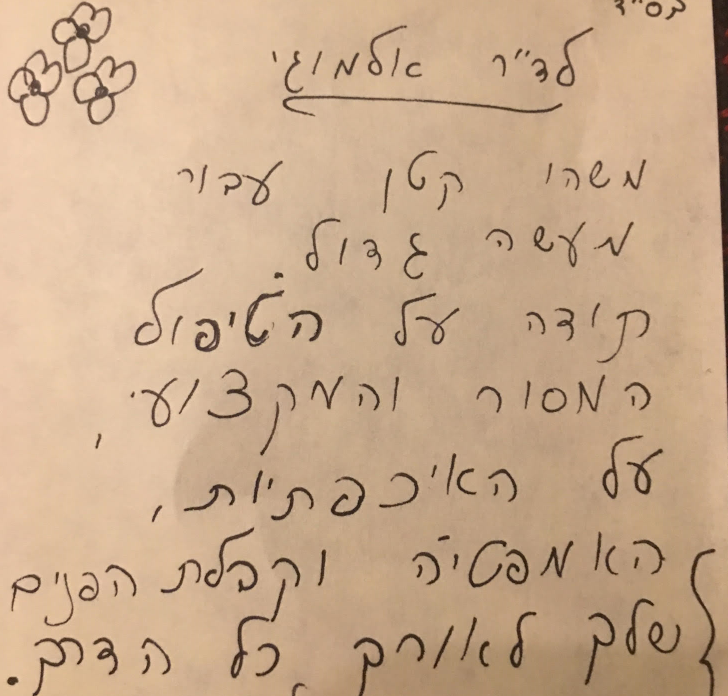 בס"ד
לד"ר אלמוגי
משהו קטן עבור
מעשה גדול.
תודה על הטיפול
המסור והמקצועי,
על האיכפתיות,
האמפטיה וקבלת הפנים
שלך לאורך כל הדרך.